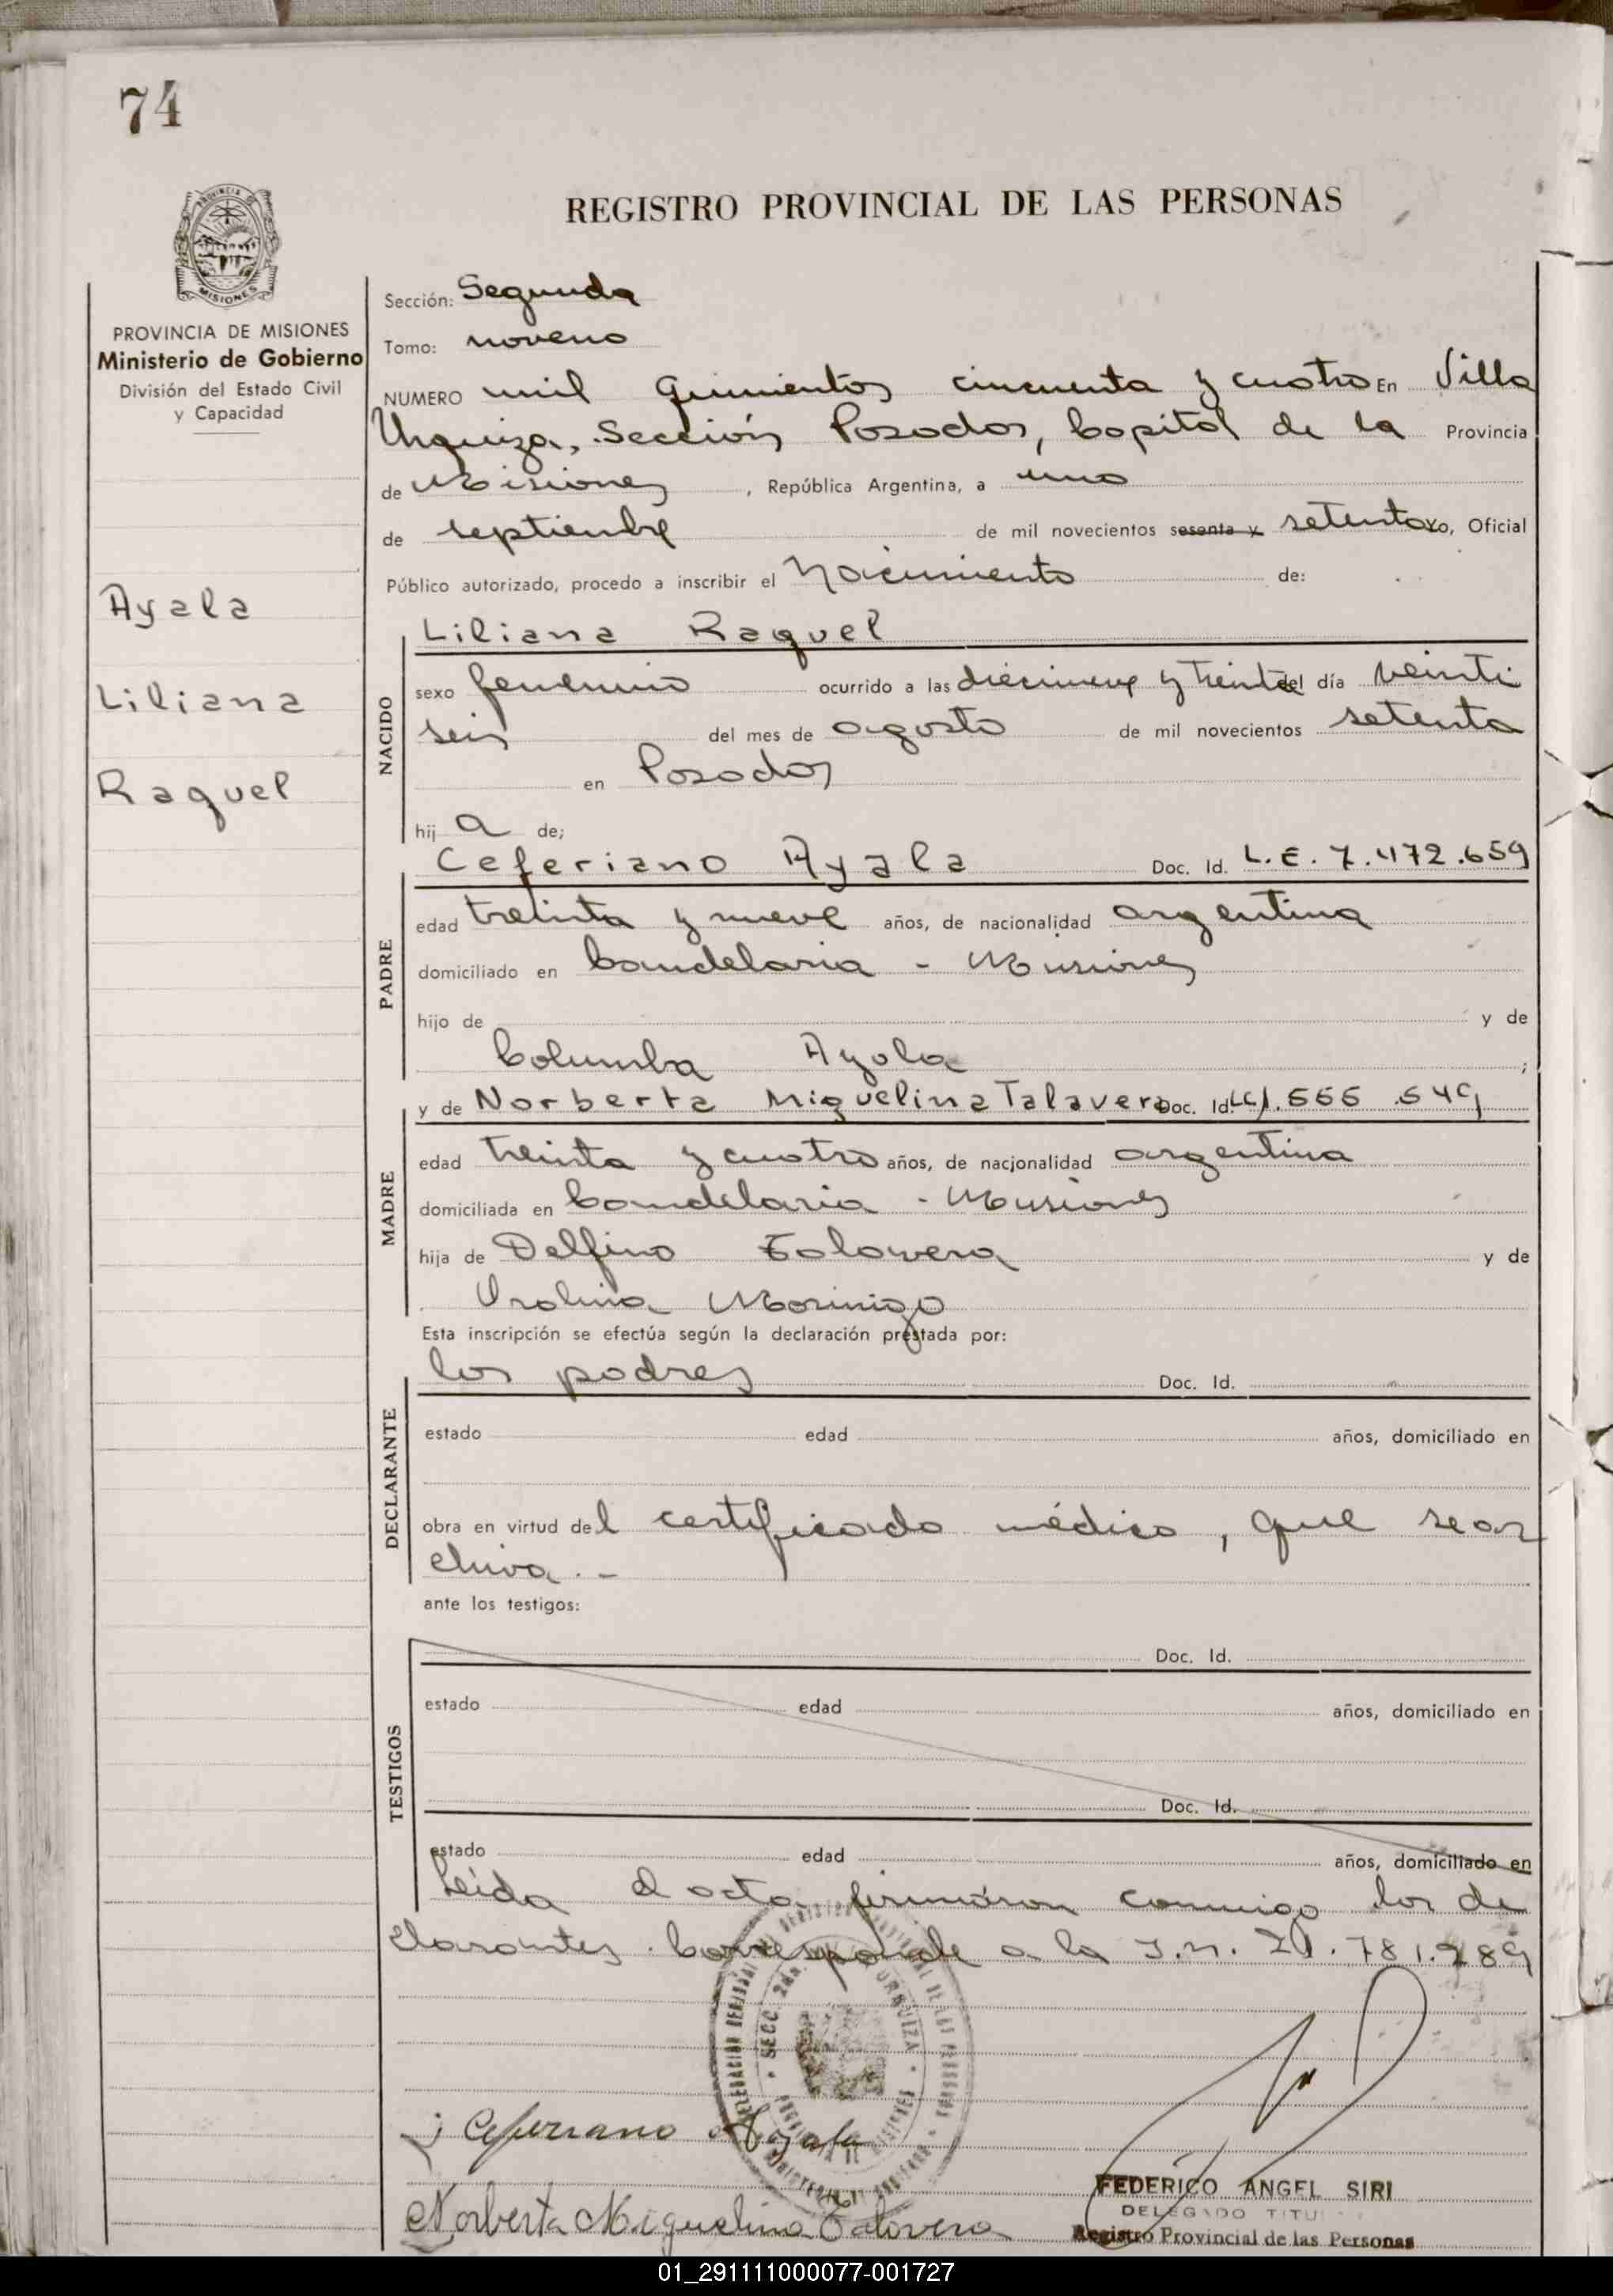 74
REGISTRO PROVINCIAL DE LAS PERSONAS
PROVINCIA DE MISIONES
Ministerio de Gobierno
División del Estado Civil
y Capacidad
Ayala
Liliana
Raquel
Sección: Segunda
Tomo: noveno
NUMERO mil quinientos cincuenta y cuatro En Villa
Urquiza, Sección Posadas, Capital de la Provincia
de Misiones, República Argentina, a uno
de septiembre de mil novecientos sesenta y setenta yo, Oficial
Público autorizado, procedo a inscribir el Nacimiento de:
Liliana Raquel
NACIDO
sexo femenino ocurrido a las diecinueve y treinta del día veinti
seis del mes de agosto de mil novecientos setenta
en Posadas
hij a de;
Ceferiano Ayala Doc. Id. L.E. 7.472.659
PADRE
edad treinta y nueve años, de nacionalidad argentina
domiciliado en Candelaria - Misiones
hijo de y de
Columba Ayala ;
y de Norberta Miguelina Talavera Doc. Id.
MADRE
edad treinta y cuatro años, de nacionalidad argentina
domiciliada en Candelaria - Misiones
hija de Delfino Talavera y de
Morinigo
Esta inscripción se efectúa según la declaración prestada por:
los padres Doc. Id.
DECLARANTE
estado edad años, domiciliado en
obra en virtud del certificado médico, que se ar
chiva.-
ante los testigos:
Doc. Id.
TESTIGOS
estado edad años, domiciliado en
Doc. Id.
estado edad años, domiciliado en
Leida el acta, firmáron conmigo los de
clarantes. Corresponde a la I.n. 21.781.289
Ceferiano Ayala
Norberta Miguelina Talavera
FEDERICO ANGEL SIRI
DELEGADO TITU
Registro Provincial de las Personas
01_291111000077-001727